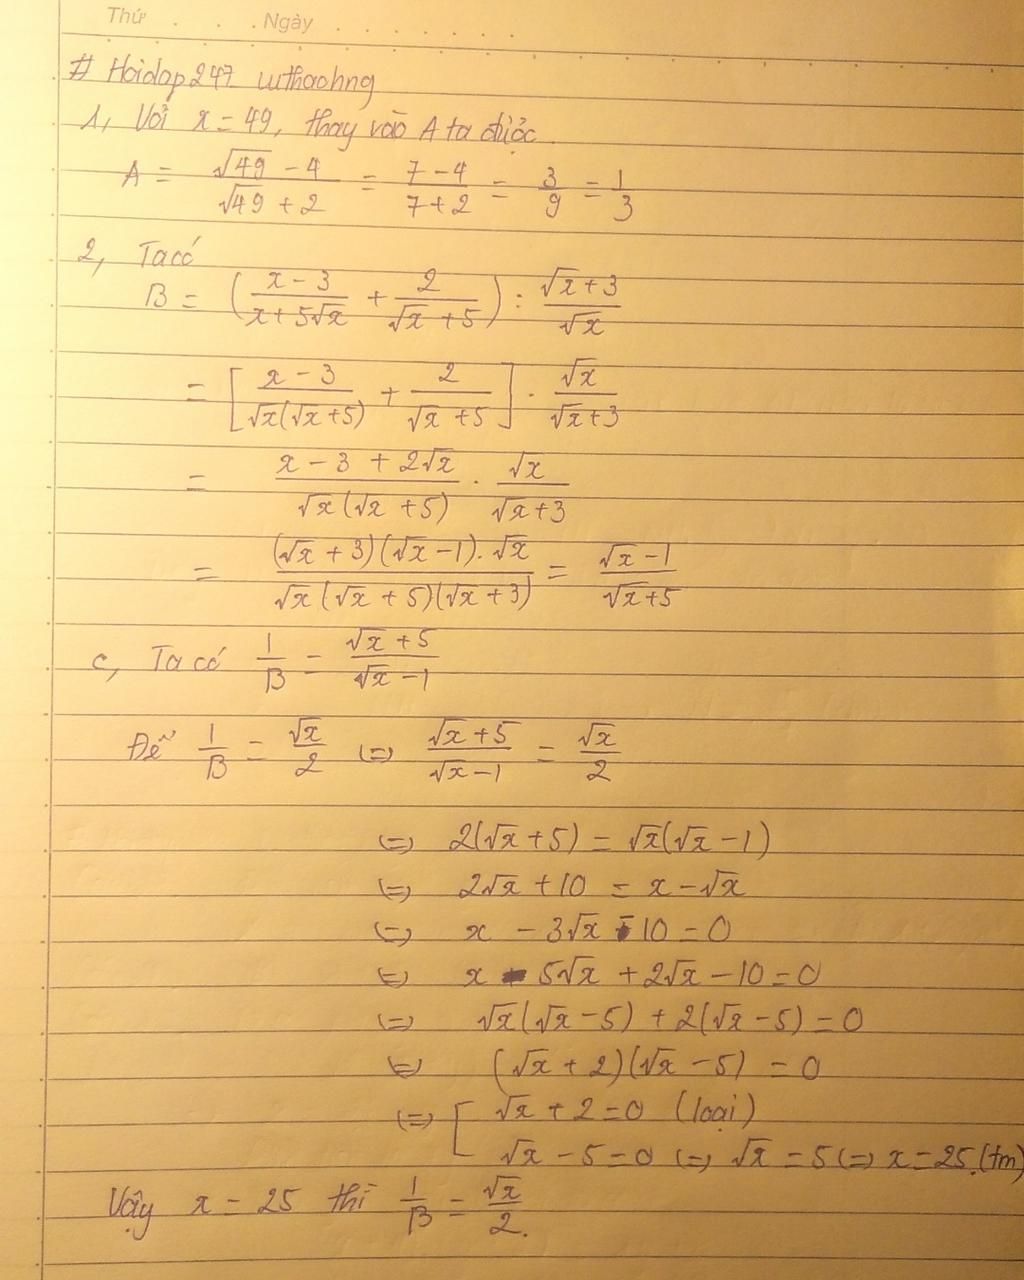 Thứ . . . . Ngày . . . . . . .
# Hoidap247 luuthaohng
1, Với x = 49, thay vào A ta được
A = (√49 - 4)/(√49 + 2) = (7 - 4)/(7 + 2) = 3/9 = 1/3
2, Ta có
B = ((x - 3)/(x + 5√x) + 2/(√x + 5)) : (√x + 3)/√x
= [(x - 3)/(√x(√x + 5)) + 2/(√x + 5)] . √x/(√x + 3)
= (x - 3 + 2√x)/(√x(√x + 5)) . √x/(√x + 3)
= ((√x + 3)(√x - 1).√x)/(√x(√x + 5)(√x + 3)) = (√x - 1)/(√x + 5)
c, Ta có 1/B = (√x + 5)/(√x - 1)
Để 1/B = √x/2 (=) (√x + 5)/(√x - 1) = √x/2
(=) 2(√x + 5) = √x(√x - 1)
(=) 2√x + 10 = x - √x
(=) x - 3√x - 10 = 0
(=) x - 5√x + 2√x - 10 = 0
(=) √x(√x - 5) + 2(√x - 5) = 0
(=) (√x + 2)(√x - 5) = 0
(=) [ √x + 2 = 0 (loại)
√x - 5 = 0 (=) √x = 5 (=) x = 25 (tm)
Vậy x = 25 thì 1/B = √x/2.